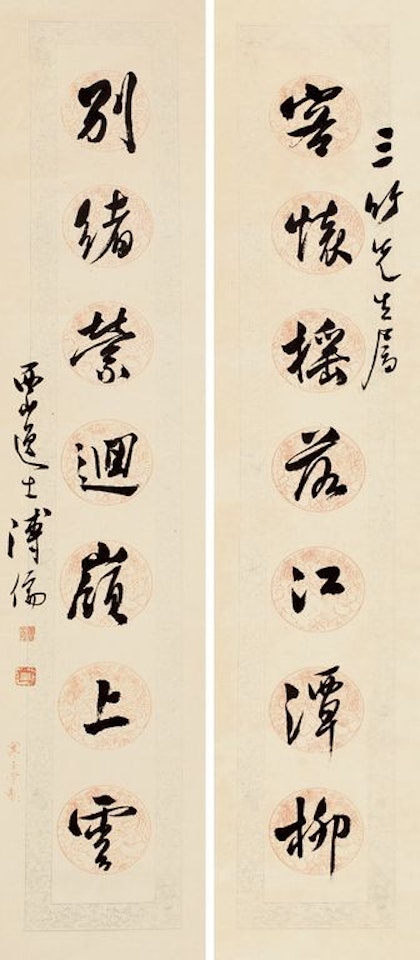 三竹先生屬
客懷搖落江潭柳
別緒縈迴嶺上雲
西山逸士溥儒